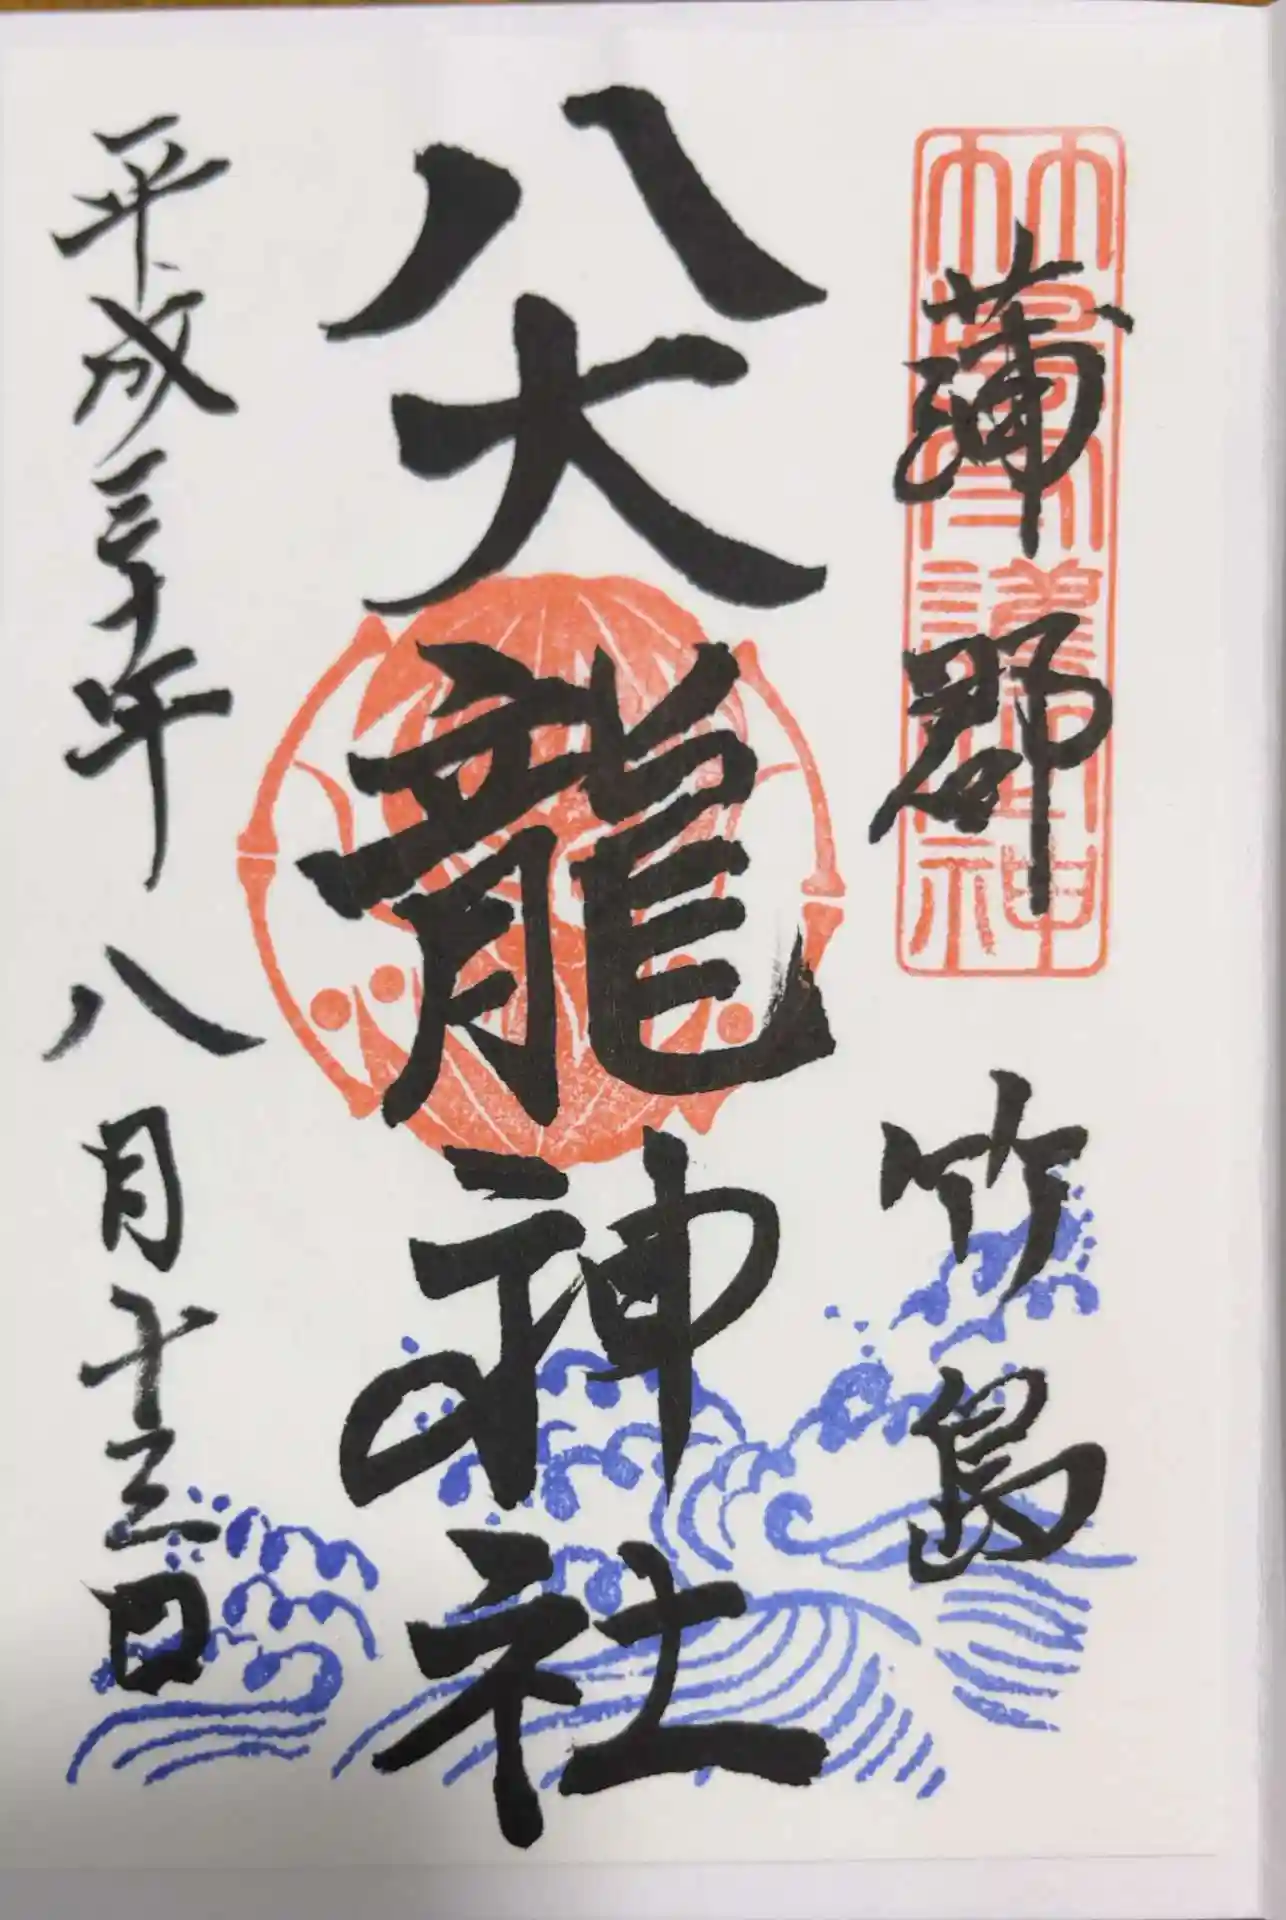 蒲郡 竹島
竹島守護神
八大龍神社
平成三十年八月十三日